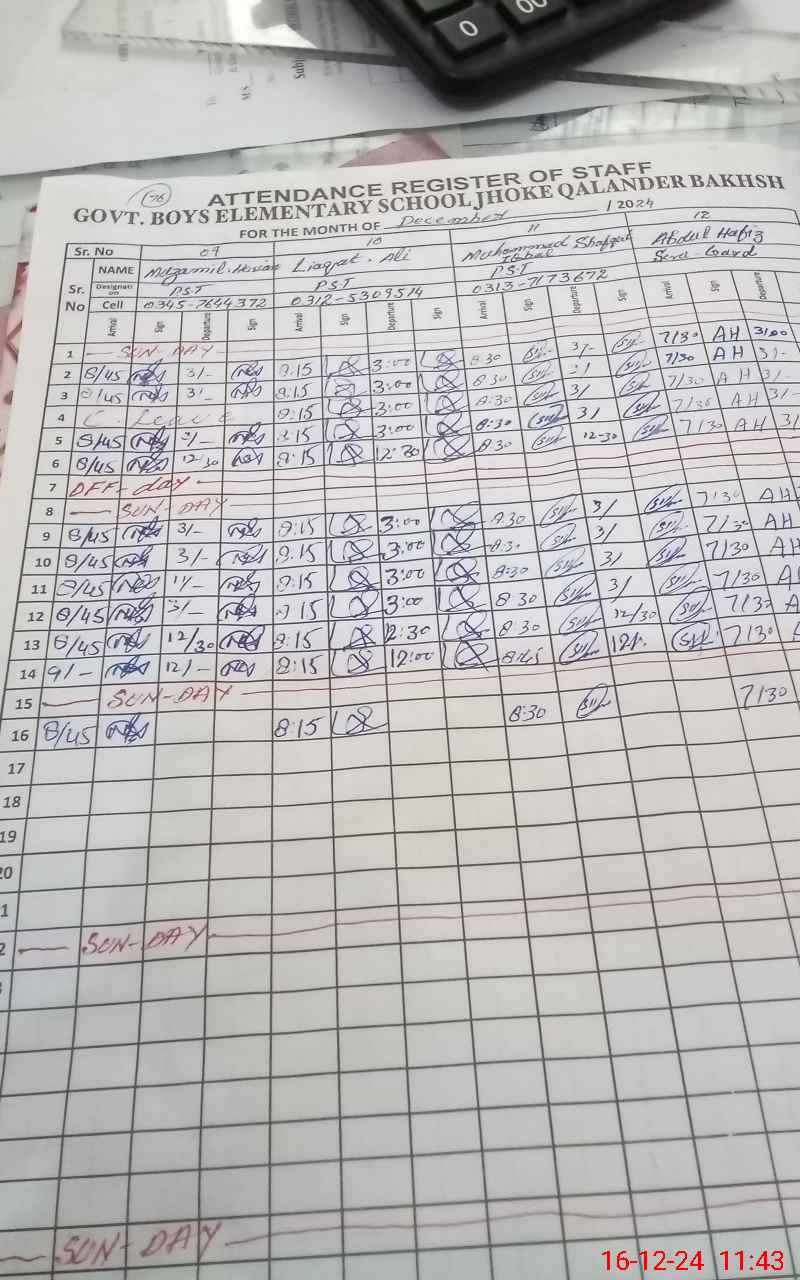 0
00
Subj
76
ATTENDANCE REGISTER OF STAFF
GOVT. BOYS ELEMENTARY SCHOOL JHOKE QALANDER BAKHSH
FOR THE MONTH OF December / 2024
Sr. No 09 10 11 12
NAME Liaqat . Ali Muhammad Shafqat Iqbal Abdul Hafiz
Sr. No Designation P.S.T P.S.T P.S.T
Cell 0345-7644372 0312-5309514 0313-7173672
Arrival Sign Departure Sign Arrival Sign Departure Sign Arrival Sign Departure Sign Arrival Sign Departure
1 SUN-DAY 7/30 AH 3/00
2 8/45 3/- 8:15 3:00 8:30 3/- 7/30 AH 3/-
3 8/45 3/- 8:15 3:00 8:30 3/ 7/30 AH 3/-
4 C. Leave 8:15 3:00 8:30 3/ 7/30 AH 3/-
5 8/45 3/- 8:15 3:00 8:30 3/ 7/30 AH 3/
6 8/45 12/30 8:15 12:30 8:30 12-30
7 OFF-day
8 SUN-DAY
9 8/45 3/- 8:15 3:00 8:30 3/ 7/30 AH
10 8/45 3/- 8:15 3:00 8:30 3/ 7/30 AH
11 8/45 8:15 3:00 8:30 3/ 7/30 AH
12 8/45 3/- 8:15 3:00 8:30 3/ 7/30 A
13 8/45 12/30 8:15 2:30 8:30 12/30 7/30 A
14 9/- 12/- 8:15 12:00 8:45 12/- 7/30
15 SUN-DAY
16 8/45 8:15 8:30 7/30
17
18
19
20
1
2 SUN-DAY
SUN-DAY
16-12-24 11:43